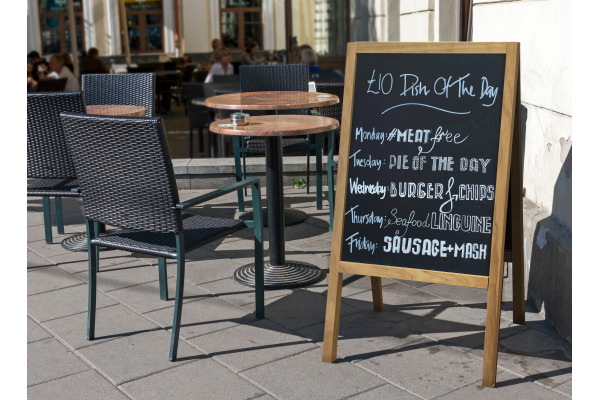 £10 Dish Of The Day
Monday: #MEAT free
Tuesday: PIE OF THE DAY
Wednesday: BURGER & CHIPS
Thursday: Seafood LINGUINE
Friday: SAUSAGE + MASH